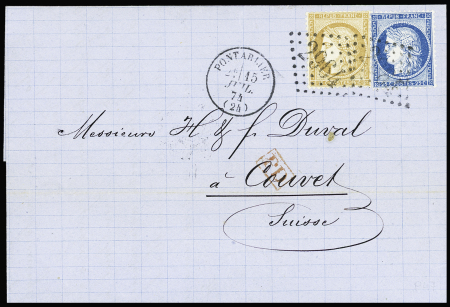 REPUB. FRANC.
REPUB. FRANC.
PONTARLIER
15
JUIL.
74
(24)
25 C POSTES 25 C
Messieurs H & f. Duval
P.D.
à Couvet
Suisse